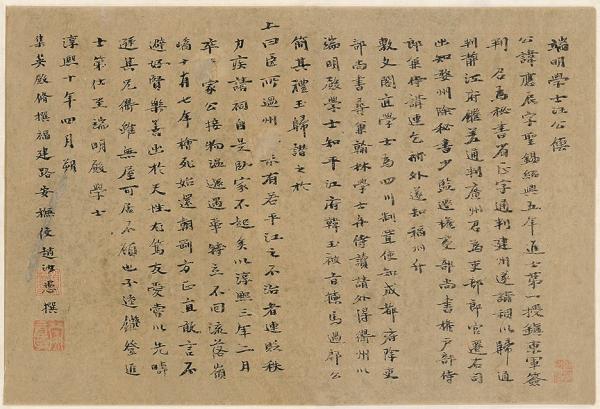 端明學士汪公傳
公諱應辰字聖錫紹興五年進士第一授鎮東軍簽
判召爲秘書省正字通判建州遂請祠以歸通
判靜江府 差通判廣州召爲吏部郎官遷右司
出知婺州除秘書少監遷權吏部尚書權戶部侍
郎兼侍講連乞補外遂知福州升
敷文閣直學士爲四川制置使知成都府除吏
部尚書尋兼翰林學士并侍讀請外得衢州以
端明殿學士知平江府韓玉被旨揀馬過郡公
簡其禮玉歸譖之於
上曰臣所過州 未有若平江之不治者連貶秩
力疾請祠自是臥家不起矣以淳熙三年二月
卒 家公接物溫遜遇事特立不回流落嶺
嶠十有七年檜死始還朝剛方正直敢言不
避好賢樂善出於天性尤篤友愛嘗以先疇
遜其兄衢雖無屋可居不顧也子逵 登進
士第仕至端明殿學士
淳熙十年四月朔
集英殿脩撰福建路安撫使趙汝愚撰